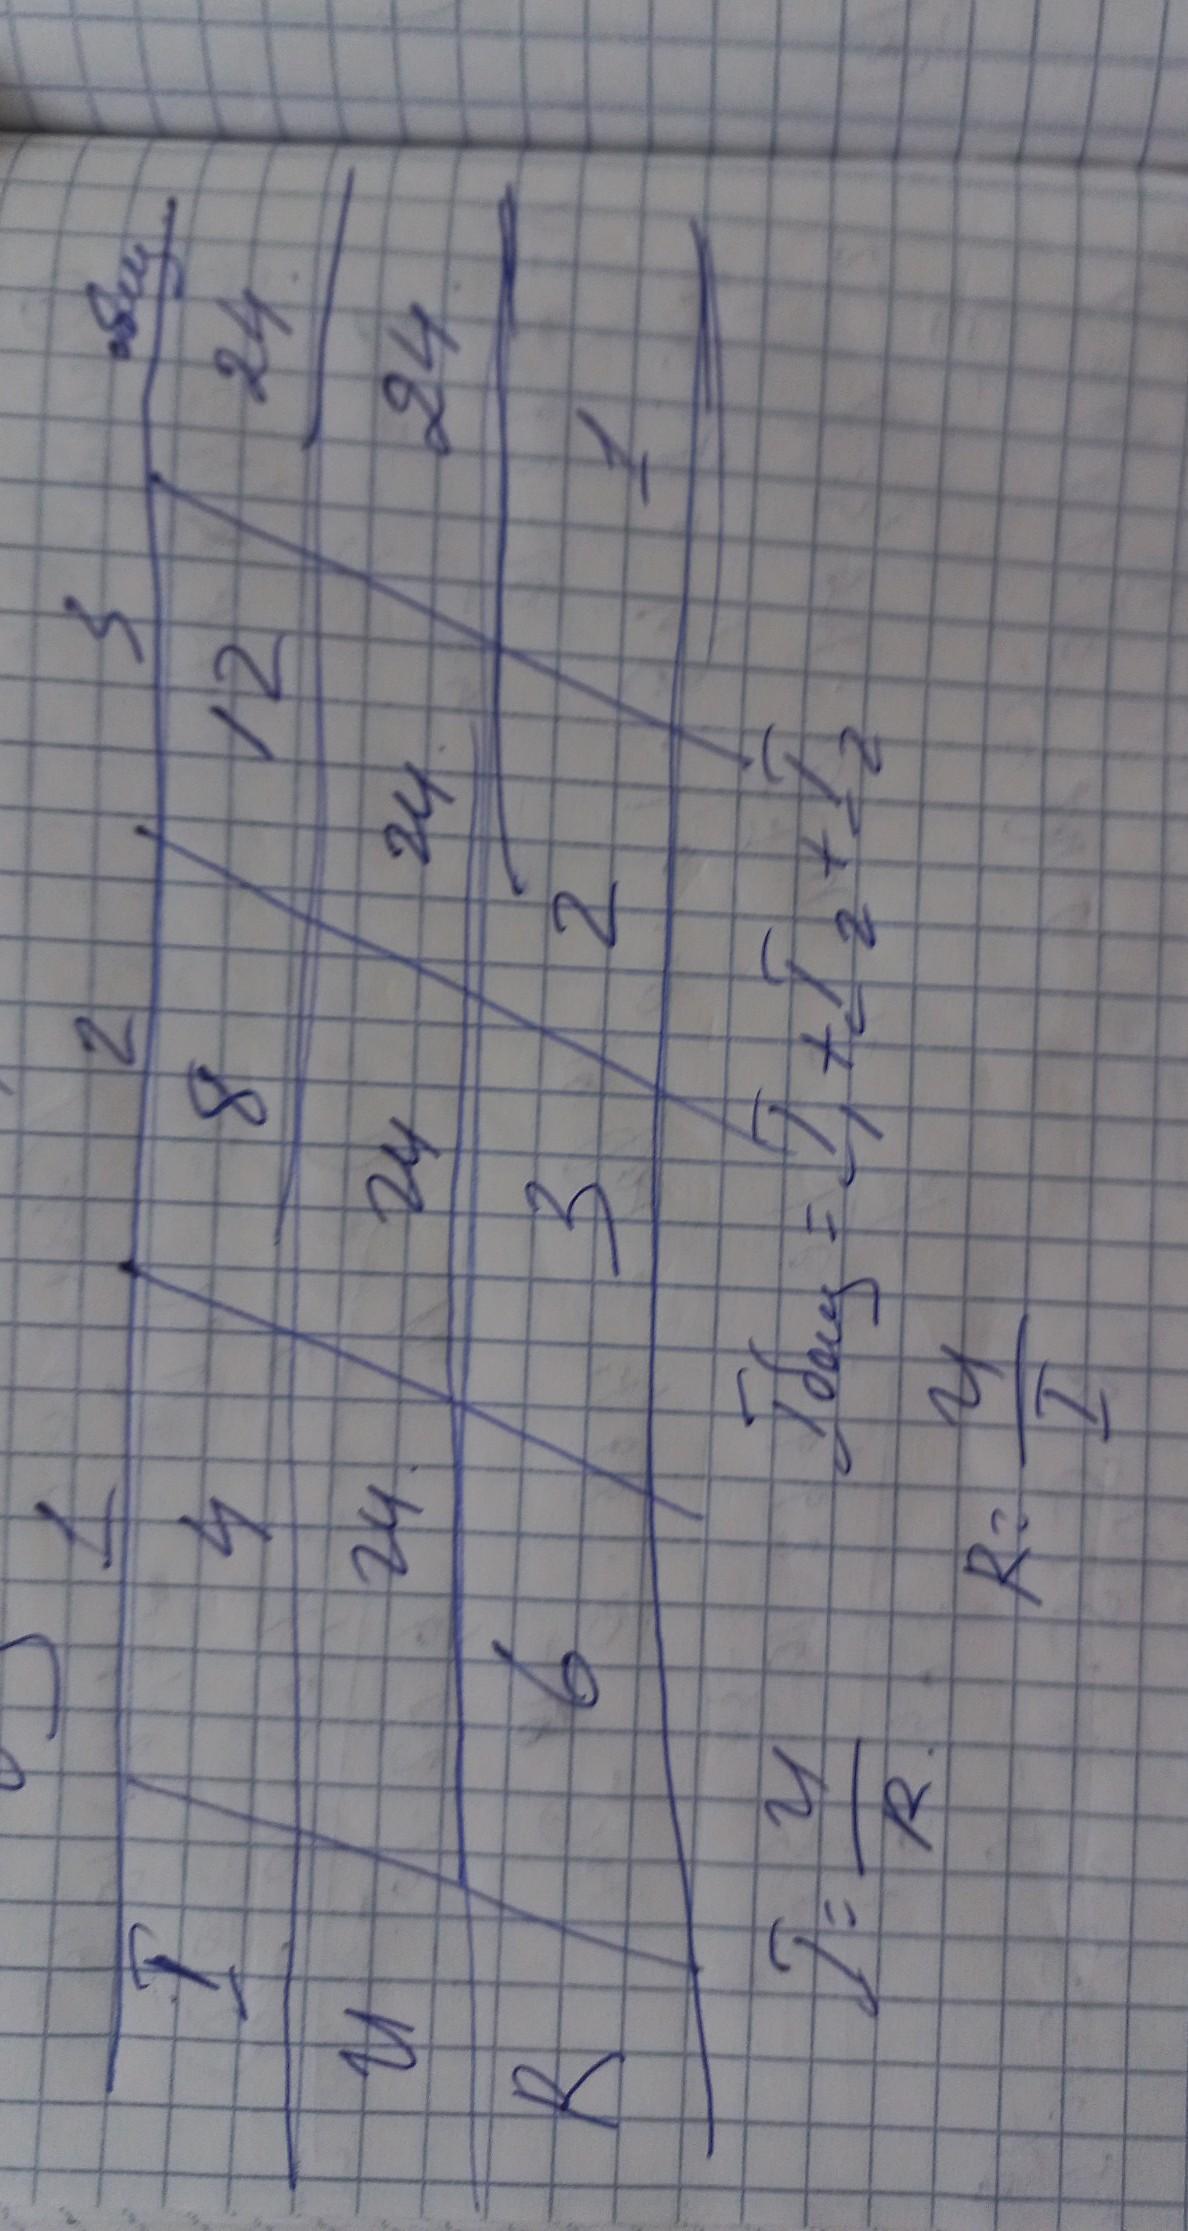 1 2 3 общ
I 4 8 12 24
U 24 24 24 24
R 6 3 2 1
Iобщ = I1 + I2 + I2
I = U/R R = U/I